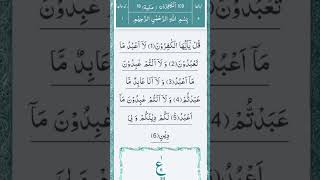 109 اَلْكٰفِرُوْن
بِسْمِ اللّٰهِ الرَّحْمٰنِ الرَّحِيْمِ
قُلْ يٰٓاَيُّهَا الْكٰفِرُوْنَ (1) لَآ اَعْبُدُ مَا
تَعْبُدُوْنَ (2) وَ لَآ اَنْتُمْ عٰبِدُوْنَ
مَآ اَعْبُدُ (3) وَ لَآ اَنَا عَابِدٌ مَّا
عَبَدْتُّمْ (4) وَ لَآ اَنْتُمْ عٰبِدُوْنَ مَآ
اَعْبُدُ (5) لَكُمْ دِيْنُكُمْ وَ لِیَ
دِيْنِ (6)
ع